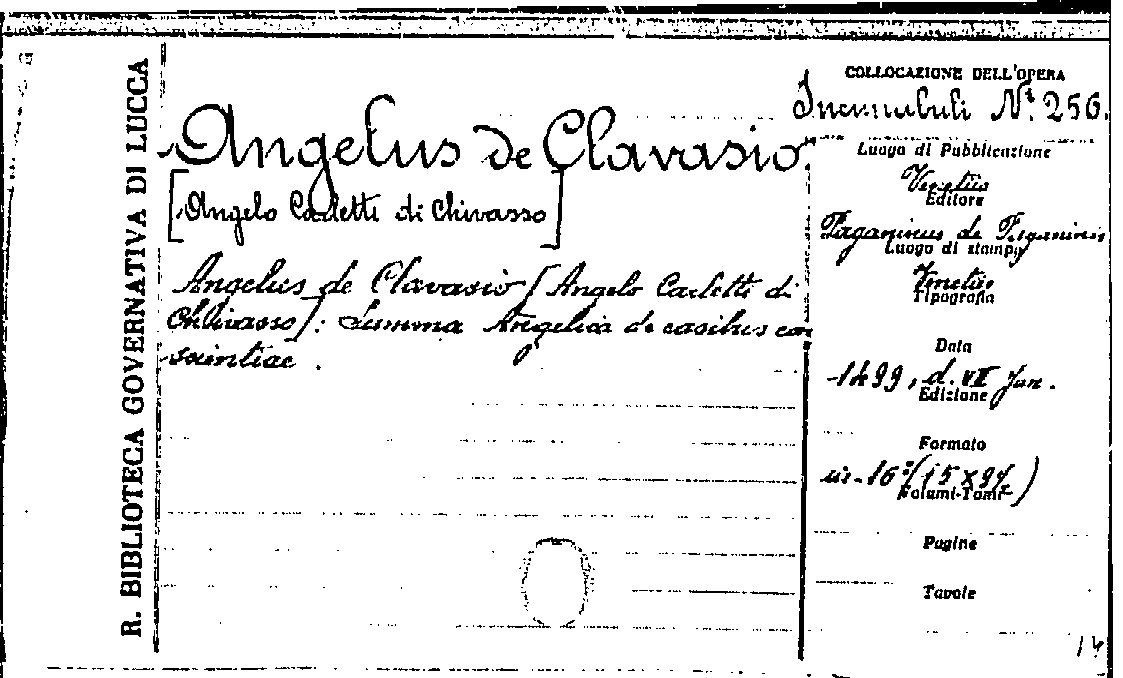 R. BIBLIOTECA GOVERNATIVA DI LUCCA
Angelus de Clavasio
[Angelo Carletti di Chivasso]
Angelus de Clavasio [Angelo Carletti di
Chivasso]: Summa Angelica de casibus con
scientiae.
COLLOCAZIONE DELL'OPERA
Incunabuli N.º 256.
Luogo di Pubblicazione
Venetiis
Editore
Paganinus de Paganinis
Luogo di stampa
Venetiis
Tipografia
Data
1499, d. VII Jun.
Edizione
Formato
in-16º (15 x
Volumi-Tomi
Pagine
Tavole
14